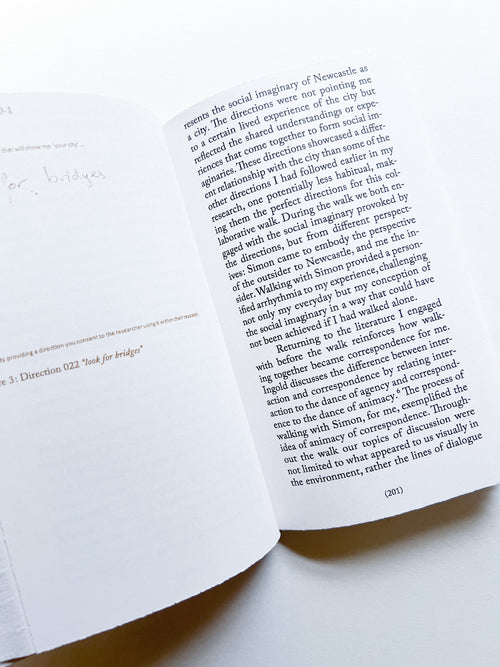 0-1
that will show me 'your city'.
for bridges.
By providing a direction you consent to the researcher using it within their research.
e 3: Direction 022 "look for bridges"
resents the social imaginary of Newcastle as
a city. The directions were not pointing me
to a certain lived experience of the city but
reflected the shared understandings or expe-
riences that come together to form social im-
aginaries. These directions showcased a differ-
ent relationship with the city than some of the
other directions I had followed earlier in my
research, one potentially less habitual, mak-
ing them the perfect directions for this col-
laborative walk. During the walk we both en-
gaged with the social imaginary provoked by
the directions, but from different perspect-
ives: Simon came to embody the perspective
of the outsider to Newcastle, and me the in-
sider. Walking with Simon provided a person-
ified arhythmia to my experience, challenging
not only my everyday but my conception of
the social imaginary in a way that could have
not been achieved if I had walked alone.
Returning to the literature I engaged
with before the walk reinforces how walk-
ing together became correspondence for me.
Ingold discusses the difference between inter-
action and correspondence by relating inter-
action to the dance of agency and correspond-
ence to the dance of animacy.⁶ The process of
walking with Simon, for me, exemplified the
idea of animacy of correspondence. Through-
out the walk our topics of discussion were
not limited to what appeared to us visually in
the environment, rather the lines of dialogue
(201)